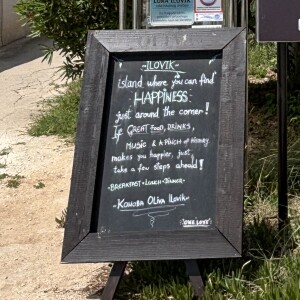 LUNA ILOVIK
-ILOVIK-
Island where you can find
HAPPINESS
just around the corner!
If GREAT FOOD, DRINKS,
MUSIC & A PINCH of Honey
makes you happier, just
take a few steps ahead!
-BREAKFAST-LUNCH-DINNER-
-KONOBA OLIVA ILOVIK-
"ONE LOVE"